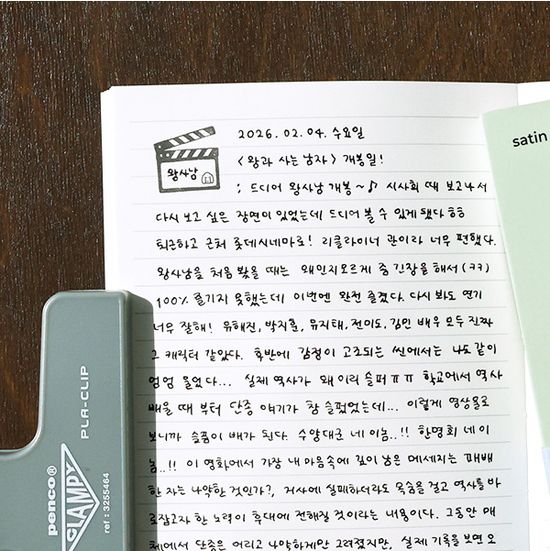 2026. 02. 04. 수요일
왕사남
<왕과 사는 남자> 개봉일!
: 드디어 왕사남 개봉~♪ 시사회 때 보고나서
다시 보고 싶은 장면이 있었는데 드디어 볼 수 있게 됐다 ㅎㅎ
퇴근하고 근처 롯데시네마로! 리클라이너 관이라 너무 편했다.
왕사남을 처음 봤을 때는 왜인지모르게 좀 긴장을 해서 (ㅋㅋ)
100% 즐기지 못했는데 이번엔 완전 즐겼다. 다시 봐도 연기
너무 잘해! 유해진, 박지훈, 유지태, 전미도, 김민 배우 모두 진짜
그 캐릭터 같았다. 후반에 감정이 고조되는 씬에서는 나도 같이
엉엉 울었다... 실제 역사가 왜 이리 슬퍼ㅠㅠ 학교에서 역사
배울 때 부터 단종 얘기가 참 슬펐었는데... 이렇게 영상물로
보니까 슬픔이 배가 된다. 수양대군 네 이놈..!! 한명회 네 이
놈..!! 이 영화에서 가장 내 마음속에 깊이 남은 메세지는 패배
한 자는 나약한 것인가?, 거사에 실패하더라도 목숨을 걸고 역사를 바
로잡고자 한 노력이 후대에 전해질 것이라는 내용이다. 그동안 매
체에서 단종은 어리고 나약하게만 그려졌지만, 실제 기록을 보면 오
satin
PLA-CLIP
penco®
CLAMPY
ref : 3255464